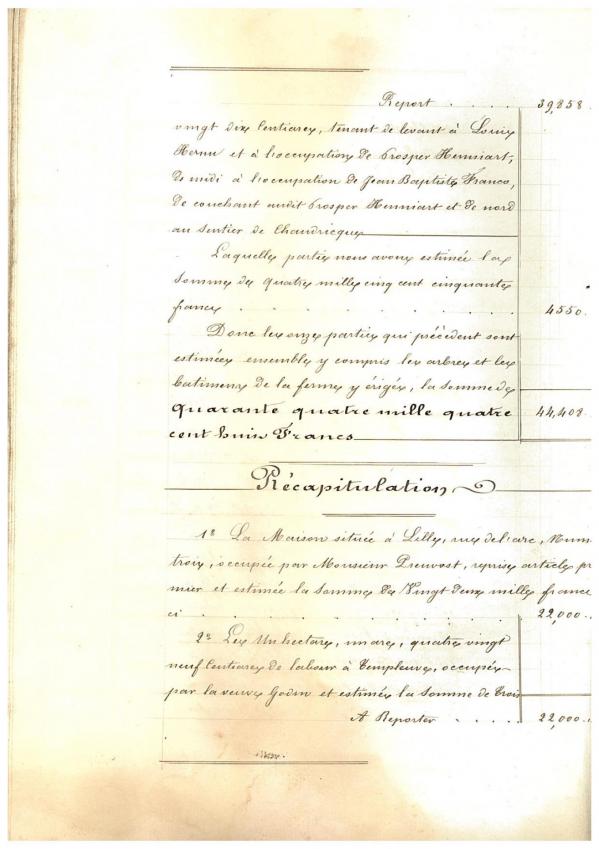 Report . . . . 39,858.
vingt dix Centiares, tenant de levant à Louis
Hernu et à l'occupation de Prosper Henniart,
de midi à l'occupation de Jean Baptiste Franco,
de couchant audit Prosper Henniart et de nord
au Sentier de Chaudricque
Laquelle partie nous avons estimée la
Somme de quatre mille cinq cent cinquante
francs . . . . . . . 4550.
Donc les onze parties qui précèdent sont
estimées ensemble y compris les arbres et les
bâtimens de la ferme y érigés, la somme de
quarante quatre mille quatre 44,408
cent huit Francs
Récapitulation
1º La Maison située à Lille, rue de l'arc, Num
trois, occupée par Monsieur Preuvost, reprise article pr
mier et estimée la Somme de Vingt deux mille france
ci . . . . . . . . 22,000.
2º Les Un hectare, un are, quatre vingt
neuf Centiares de labour à Templeuve, occupés
par la veuve Godin et estimés la Somme de Trois
A Reporter . . . . . 22,000.